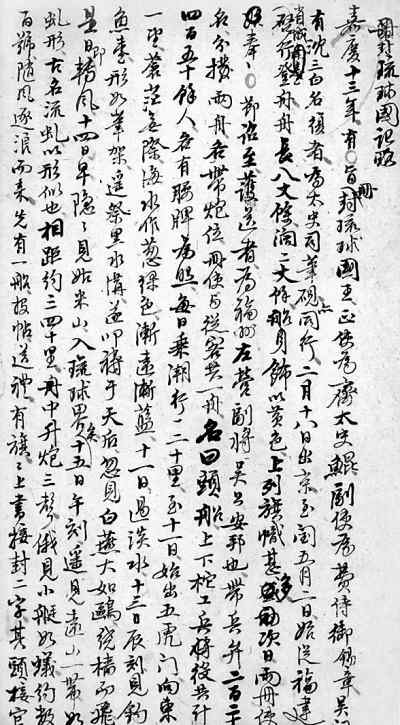 冊封琉球國記略
嘉慶十三年有旨冊封琉球國王正使為齊太史鯤副使為費侍御錫章吳
有沈三白名復者為太史司筆硯亦同行二月十八日出京至閩五月二日始從福建
省城登舟舟長八丈餘闊二丈餘船身飾以黃色上列旗幟甚多次日兩冊使
奉節詔至護送者為福州左營副將吳公安邦也帶兵弁二百二
名分撥兩舟各帶炮位冊使與從客共一舟名曰頭船上下柁工兵將役共計
四百五十餘人各有腰牌為照每日乘潮行一二十里至十一日始出五虎門向東
一望蒼茫無際海水作蔥綠色漸遠漸藍十二日過淡水十三日辰刻見釣
魚臺形如筆架遙祭黑水溝遂叩禱于天后忽見白燕大如鷗繞檣而飛
是日即轉風十四日早隱隱見姑米山入琉球界矣十五日午刻遙見遠山一帶如
虬形古名流虬以形似也相距約三四十里舟中升炮三聲俄見小艇如蟻約數
百號隨風逐浪而來先有一船投帖送禮有旗旗上書接封二字其頭接官